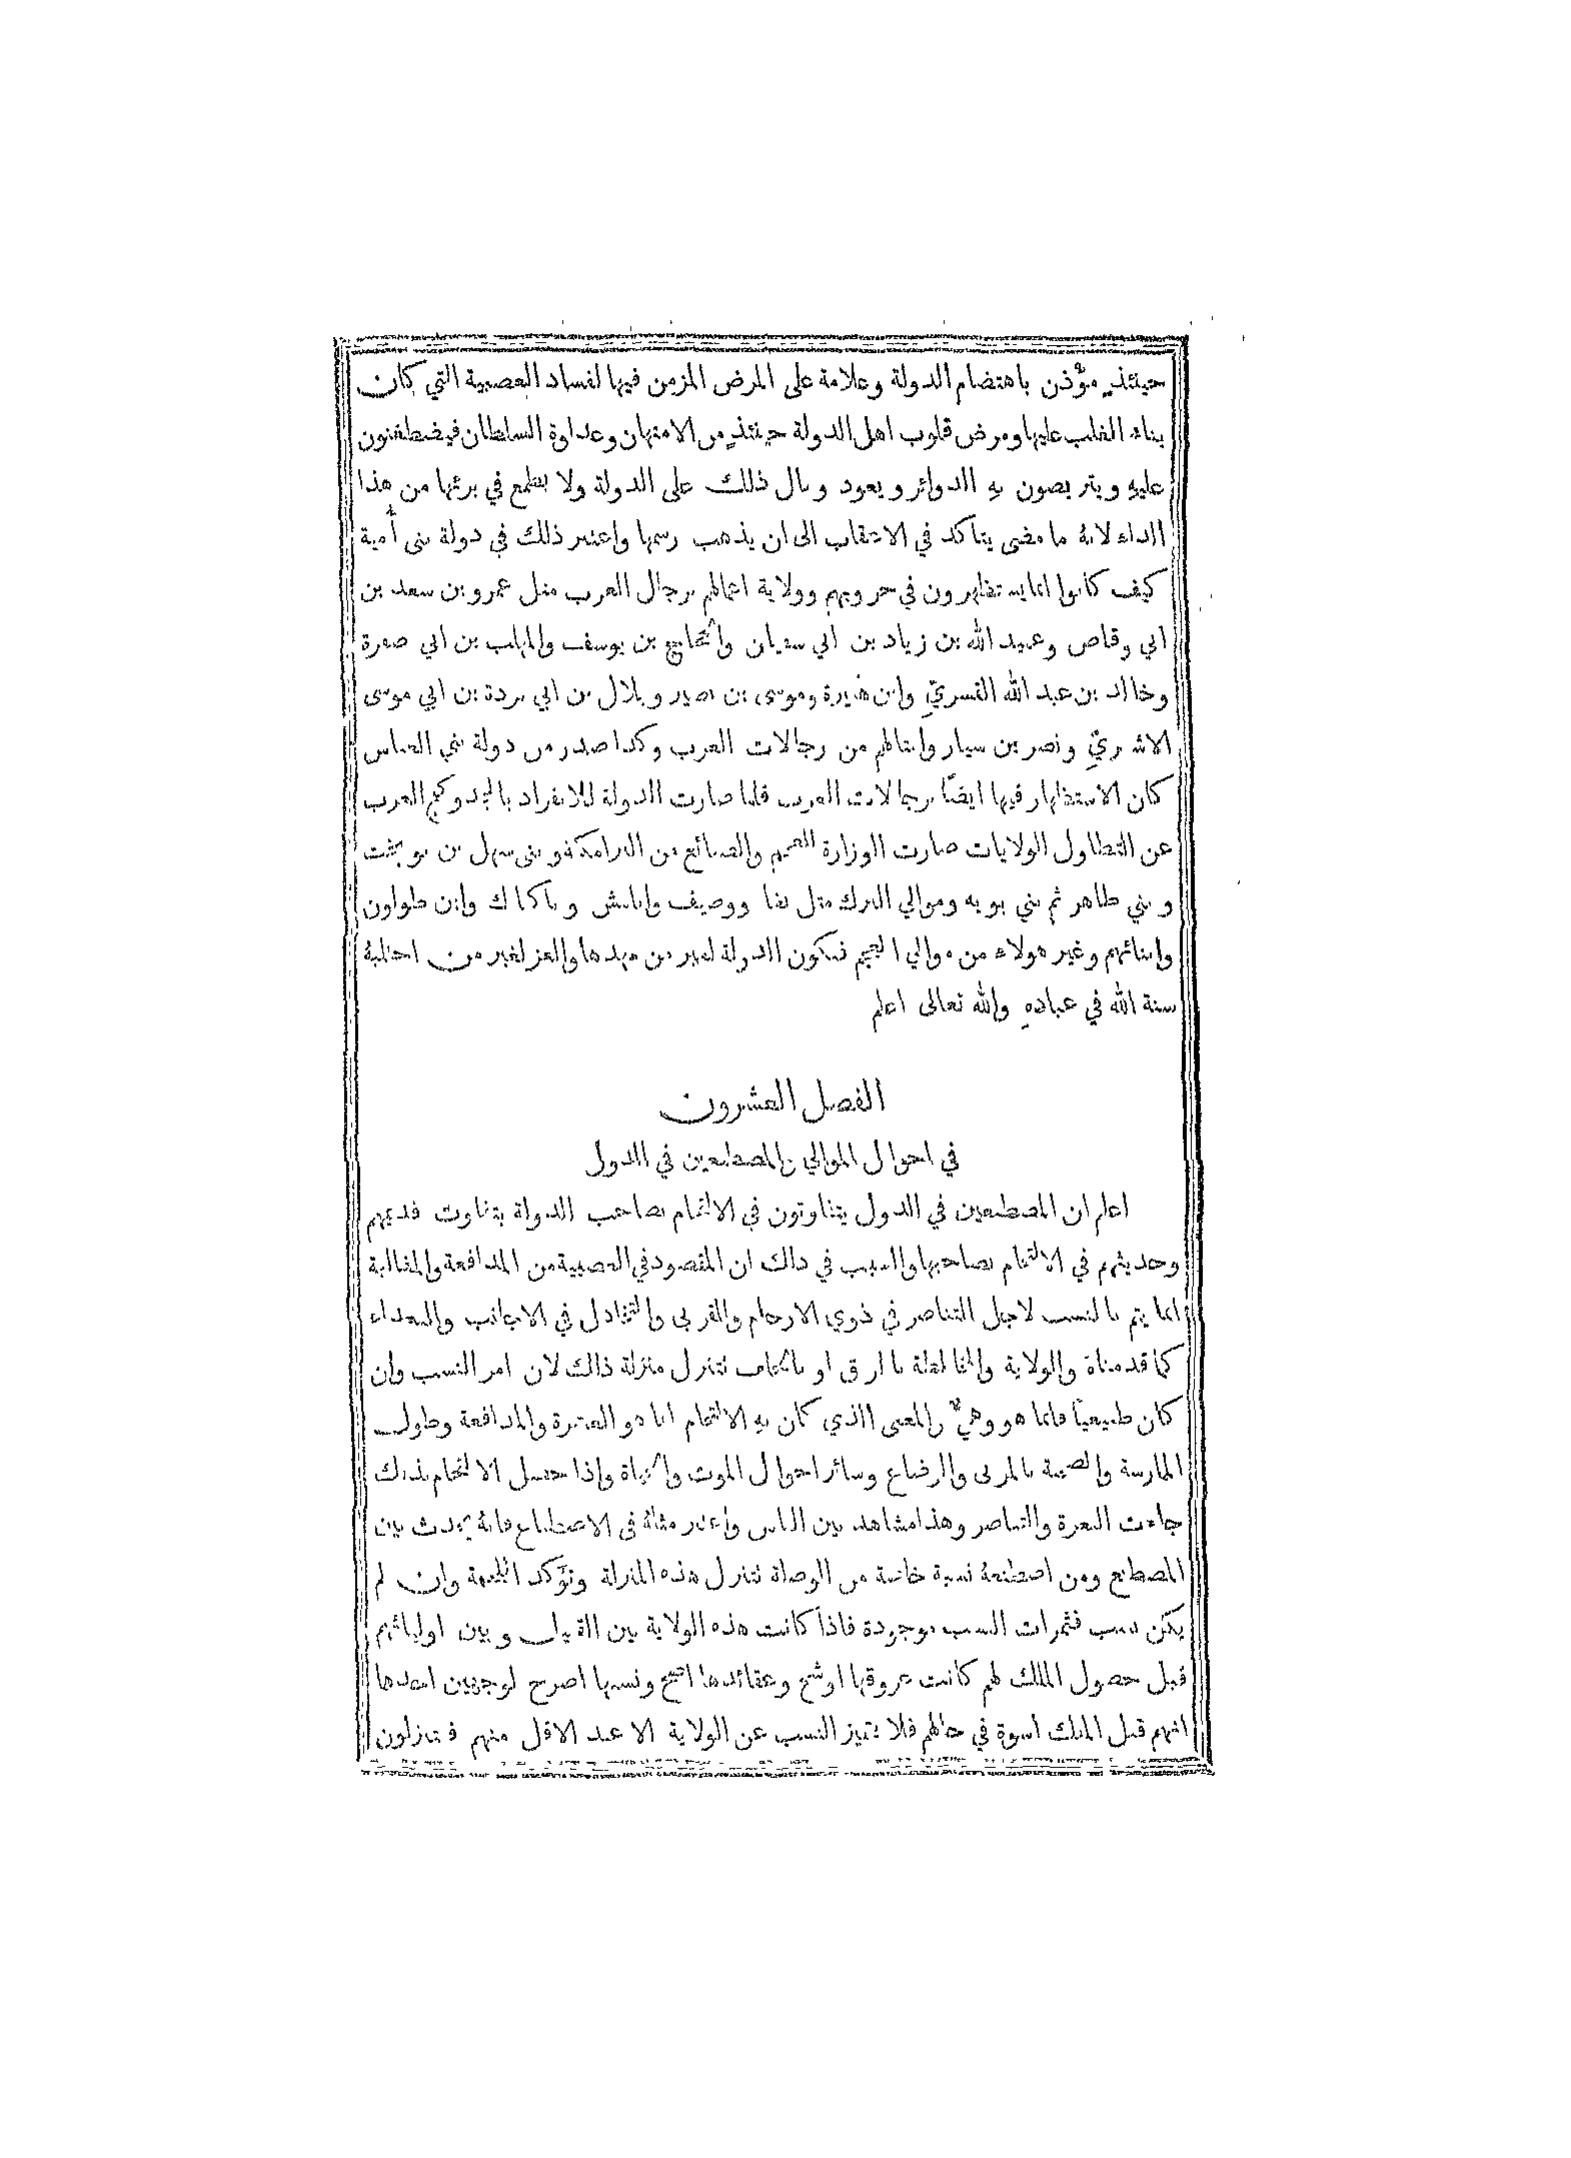 حينئذٍ مؤذن باهتضام الدولة وعلامة على المرض المزمن فيها لفساد العصبية التي كان
بناء الغلب عليها ومرض قلوب اهل الدولة حينئذٍ من الامتهان وعداوة السلطان فيضطغنون
عليهِ ويتربصون بهِ الدوائر ويعود وبال ذلك على الدولة ولا يطمع في برئها من هذا
الداء لانهُ ما مضى يتأكد في الاعقاب الى ان يذهب رسمها واعتبر ذلك في دولة بنى أمية
كيف كانوا انما يستظهرون في حروبهم وولاية اعمالهم برجال العرب مثل عمرو بن سعد بن
ابي وقاص وعبيد الله بن زياد بن ابي سفيان والحجاج بن يوسف والمهلب بن ابي صفرة
وخالد بن عبد الله القسريّ وابن هبيرة وموسى بن نصير وبلال بن ابي بردة بن ابي موسى
الاشعريّ ونصر بن سيار وامثالهم من رجالات العرب وكذا صدر من دولة بني العباس
كان الاستظهار فيها ايضًا برجالات العرب فلما صارت الدولة للانفراد بالمجد وكبح العرب
عن التطاول للولايات صارت الوزارة للعجم والصنائع من البرامكة وبنى سهل بن نوبخت
وبني طاهر ثم بني بويه وموالي الترك مثل بغا ووصيف واتامش وباكناك وابن طولون
وابنائهم وغير هولاء من موالي العجم فتكون الدولة لغير من مهدها والعز لغير من اجتلبهُ
سنة الله في عبادهِ والله تعالى اعلم
الفصل العشرون
في احوال الموالي والمصطنعين في الدول
اعلم ان المصطنعين في الدول يتفاوتون في الالتحام بصاحب الدولة بتفاوت قديمهم
وحديثهم في الالتحام بصاحبها والسبب في ذلك ان المقصود في العصبية من المدافعة والمغالبة
انما يتم بالنسب لاجل التناصر في ذوي الارحام والقربى والتخاذل في الاجانب والبعداء
كما قدمناهُ والولاية والمخالطة بالرق او بالحلف تتنزل منزلة ذلك لان امر النسب وان
كان طبيعيًا فانما هو وهميٌّ والمعنى الذي كان بهِ الالتحام انما هو العشرة والمدافعة وطول
الممارسة والصحبة بالمربى والرضاع وسائر احوال الموت والحياة واذا حصل الالتحام بذلك
جاءت النعرة والتناصر وهذا مشاهد بين الناس واعتبر مثلهُ في الاصطناع فانهُ يحدث بين
المصطنع ومن اصطنعهُ نسبة خاصة من الوصلة تتنزل هذه المنزلة وتؤكد اللحمة وان لم
يكن نسب فثمرات النسب موجودة فاذا كانت هذه الولاية بين القبيل وبين اوليائهم
قبل حصول الملك لهم كانت عروقها اوشج وعقائدها اصح ونسبها اصرح لوجهين احدها
انهم قبل الملك اسوة في حالهم فلا يتميز النسب عن الولاية الا عند الاقل منهم فيتنزلون